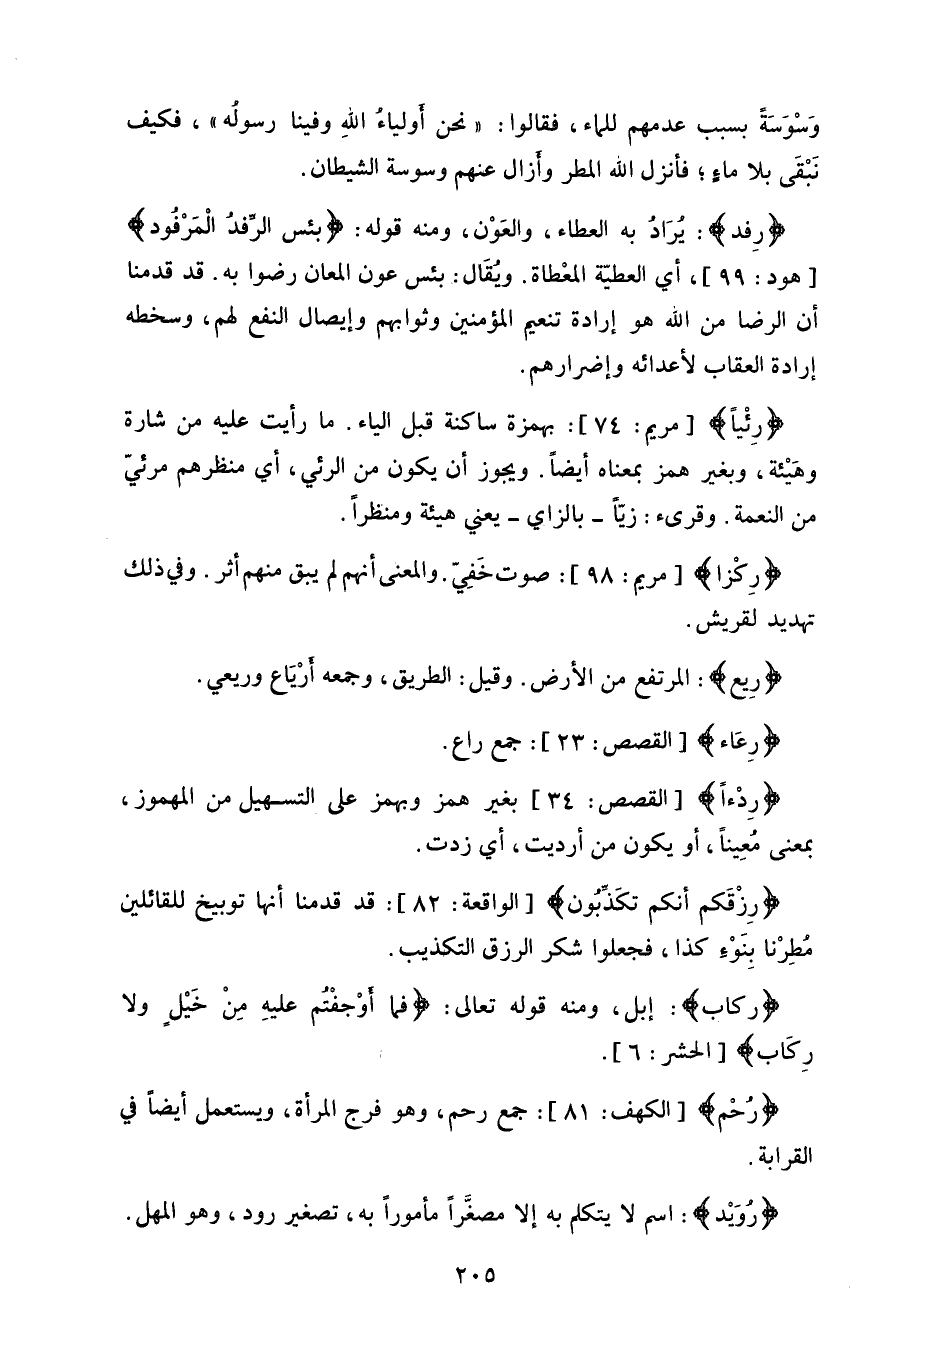 وَسْوَسَةً بسبب عدمهم للماء، فقالوا: «نحن أَولياءُ اللهِ وفينا رسولُه»، فكيف
نَبْقَى بلا ماءٍ؛ فأنزل الله المطر وأَزال عنهم وسوسة الشيطان.
﴿رِفد﴾: يُرَادُ به العطاء، والعَوْن، ومنه قوله: ﴿بئس الرِّفدُ الْمَرْفُود﴾
[هود: ٩٩]، أي العطيّة المعْطاة. ويُقَال: بئس عون المعان رضوا به. قد قدمنا
أن الرضا من الله هو إرادة تنعيم المؤمنين وثوابهم وإيصال النفع لهم، وسخطه
إرادة العقاب لأعدائه وإضرارهم.
﴿رِئْياً﴾ [مريم: ٧٤]: بهمزة ساكنة قبل الياء. ما رأيت عليه من شارة
وهَيْئة، وبغير همز بمعناه أيضاً. ويجوز أن يكون من الرئي، أي منظرهم مرئيّ
من النعمة. وقرىء: زيّاً - بالزاي - يعني هيئة ومنظراً.
﴿رِكْزا﴾ [مريم: ٩٨]: صوت خَفِيّ. والمعنى أنهم لم يبق منهم أثر. وفي ذلك
تهديد لقريش.
﴿رِيع﴾: المرتفع من الأرض. وقيل: الطريق، وجمعه أَرْيَاع وريعي.
﴿رِعَاء﴾ [القصص: ٢٣]: جمع راع.
﴿رِدْءاً﴾ [القصص: ٣٤] بغير همز وبهمز على التسهيل من المهموز،
بمعنى مُعِيناً، أو يكون من أرديت، أي زدت.
﴿رِزْقَكم أنكم تكَذِّبُون﴾ [الواقعة: ٨٢]: قد قدمنا أنها توبيخ للقائلين
مُطِرْنا بِنَوْءِ كذا، فجعلوا شكر الرزق التكذيب.
﴿رِكاب﴾: إبل، ومنه قوله تعالى: ﴿فما أَوْجفْتُم عليهِ مِنْ خَيْلٍ ولا
رِكَاب﴾ [الحشر: ٦].
﴿رُحْم﴾ [الكهف: ٨١]: جمع رحم، وهو فرج المرأة، ويستعمل أيضاً في
القرابة.
﴿رُوَيْد﴾: اسم لا يتكلم به إلا مصغَّراً مأموراً به، تصغير رود، وهو المهل.
٢٠٥